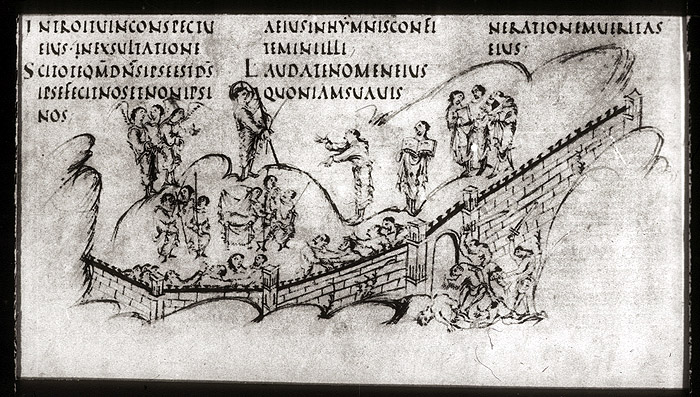 INTROITUINCONSPECTU
EIUS·INEXSULTATIONE
SCITOTEQM̄DN̄SIPSEESTD̄S
IPSEFECITNOSETNONIPSI
NOS
AEIUSINHYMNISCONFI
TEMINIILLI
LAUDATENOMENEIUS
QUONIAMSUAUIS
NERATIONEMUERITAS
EIUS·